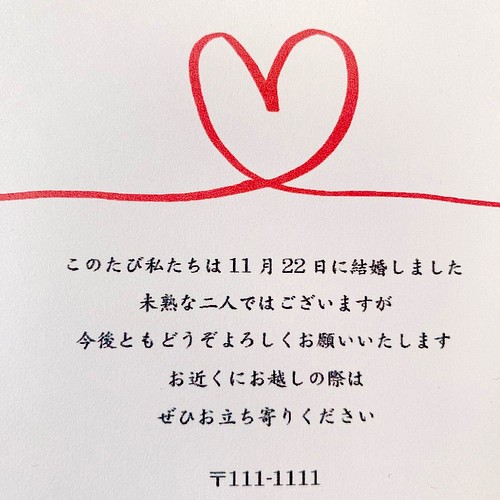 このたび私たちは11月22日に結婚しました
未熟な二人ではございますが
今後ともどうぞよろしくお願いいたします
お近くにお越しの際は
ぜひお立ち寄りください
〒111-1111